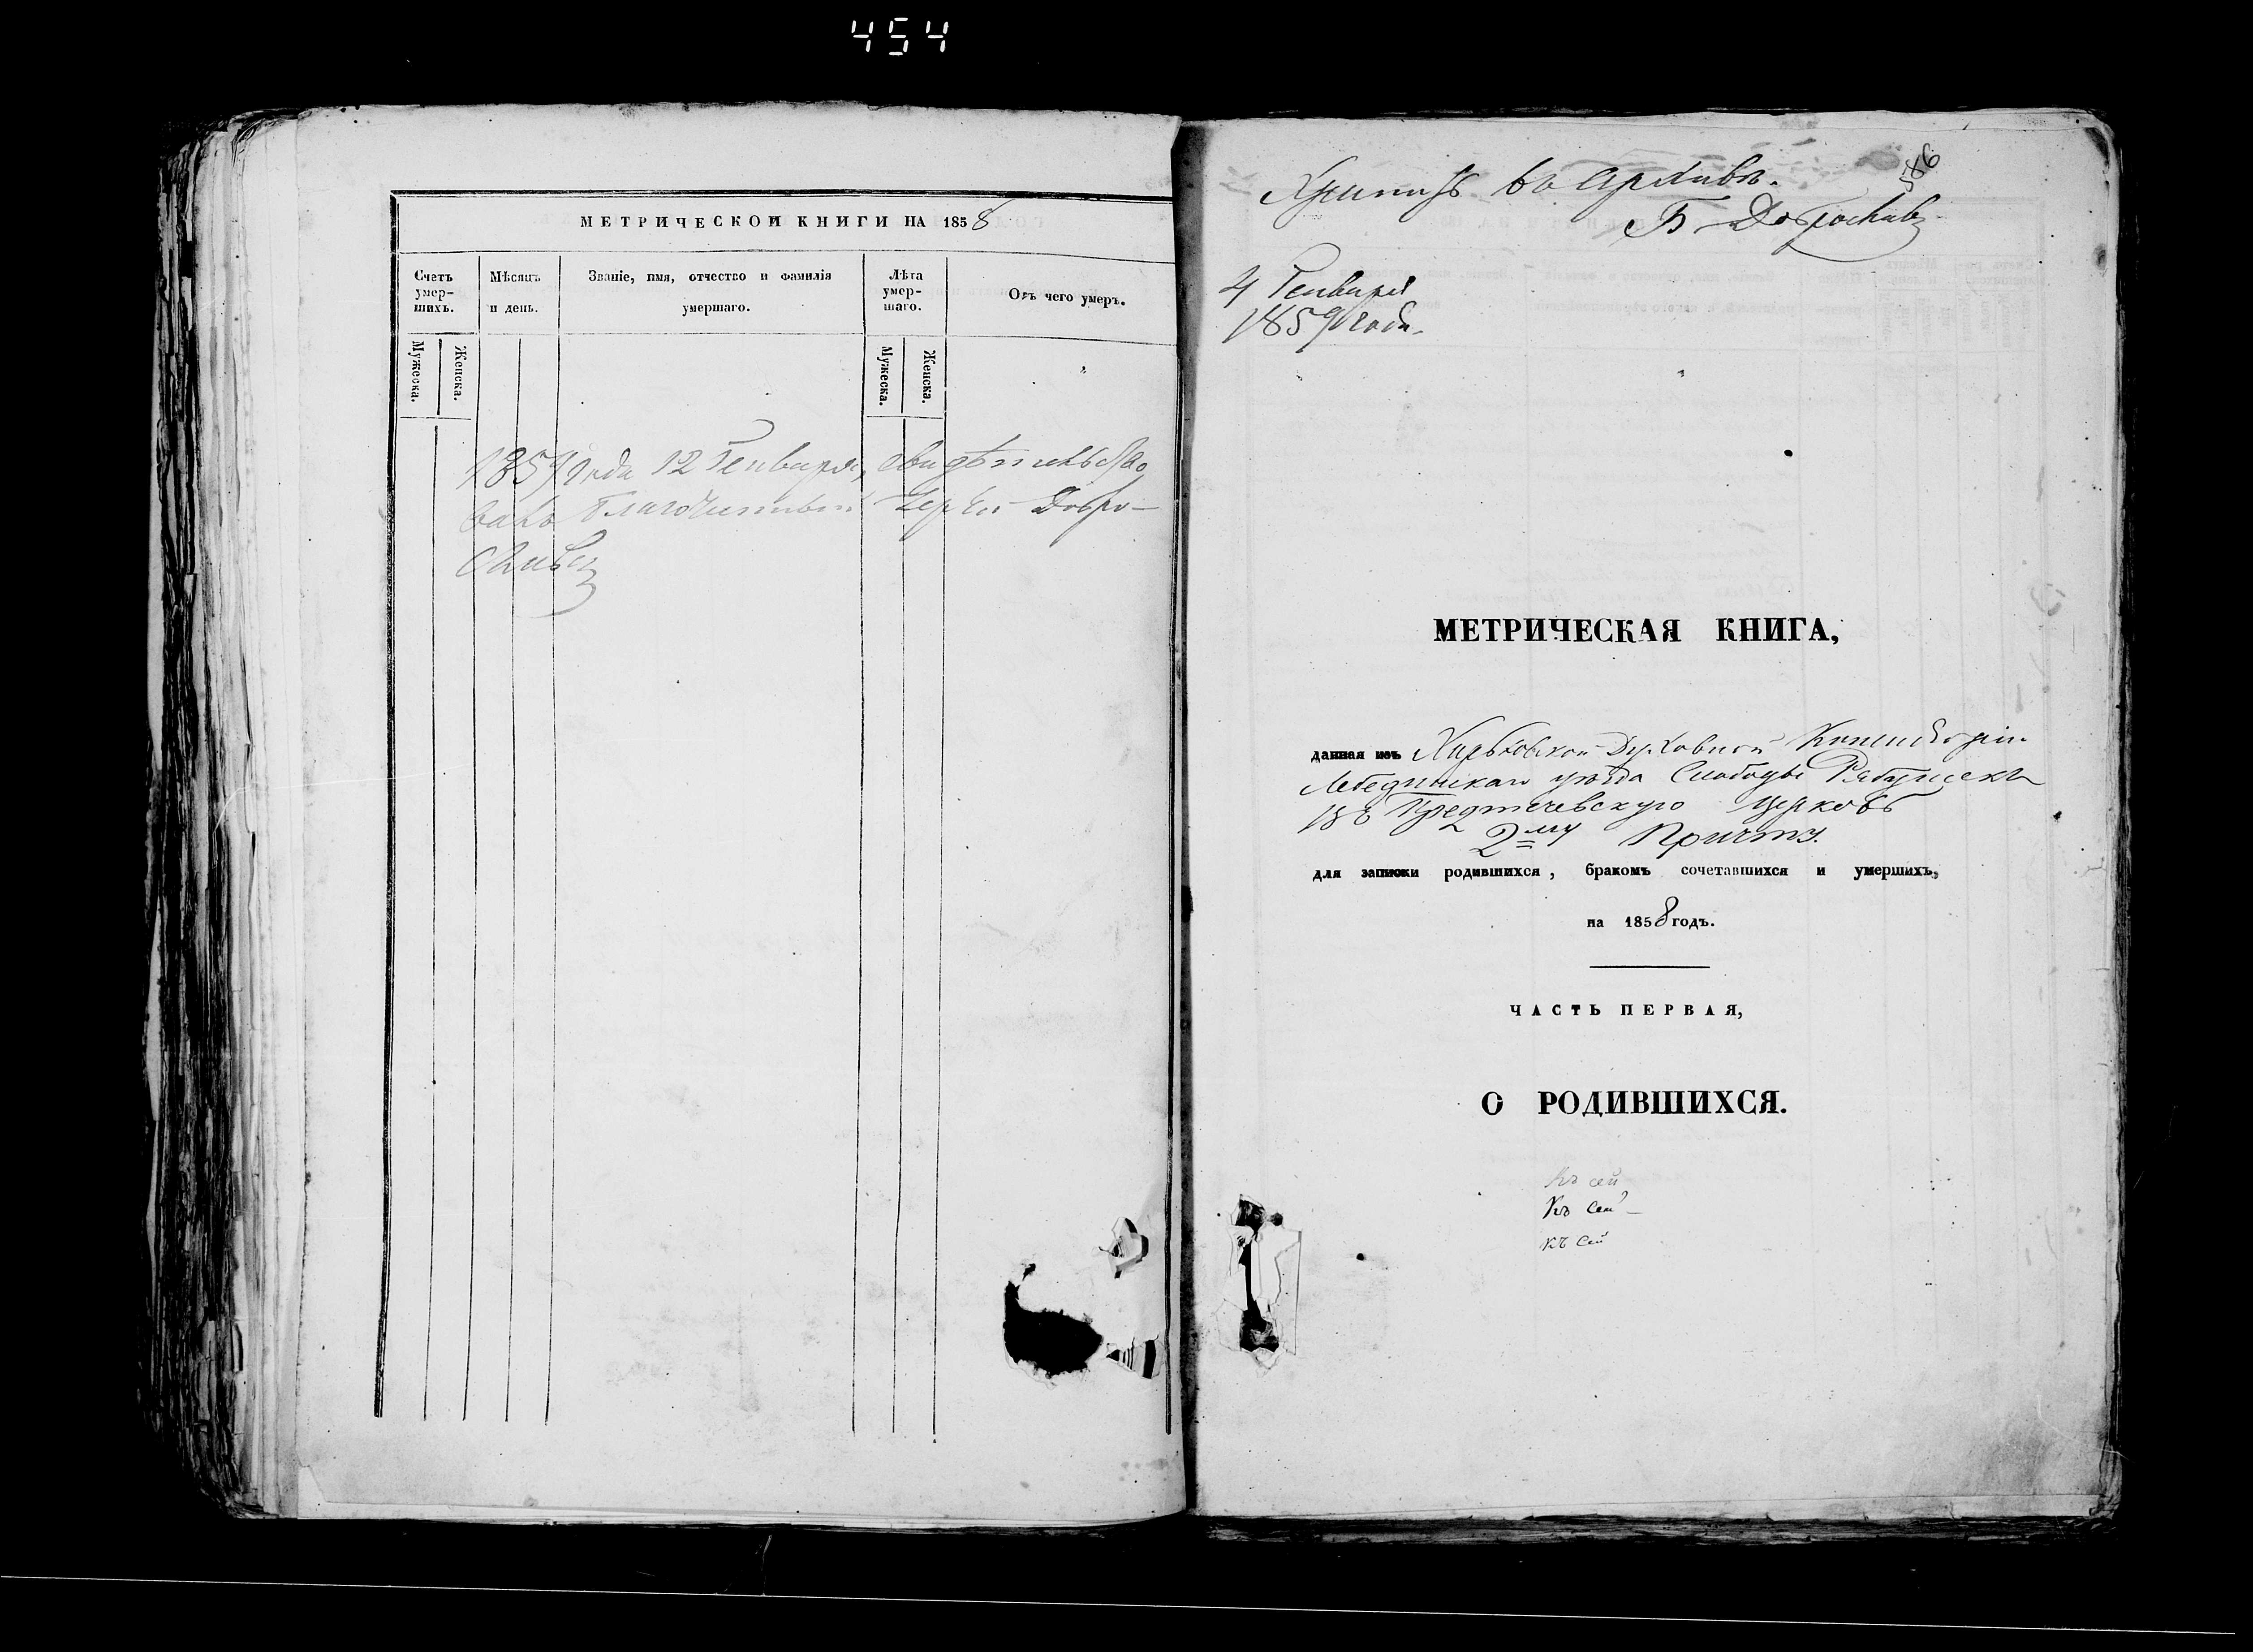 454
МЕТРИЧЕСКОЙ КНИГИ НА 1858
Счетъ умер-шихъ.
Мѣсяцъ и день.
Званіе, имя, отчество и фамилія умершаго.
Лѣта умер-шаго.
Отъ чего умеръ.
Мужеска.
Женска.
Мужеска.
Женска.
1859 года 12 Генваря, свидѣтельство
валъ Благочинный Іерей Добро-
славск
586
Хранить въ Архивѣ.
Б. Доброславск
4 Генваря
1859 года.
МЕТРИЧЕСКАЯ КНИГА,
данная изъ Харьковской Духовной Консисторіи
Лебединскаго уѣзда Слободы Рябушекъ
въ Предтечевскую церковь
2му Причту.
для записки родившихся, бракомъ сочетавшихся и умершихъ,
на 1858 годъ.
ЧАСТЬ ПЕРВАЯ,
О РОДИВШИХСЯ.
Къ сей
Къ сей
къ сей